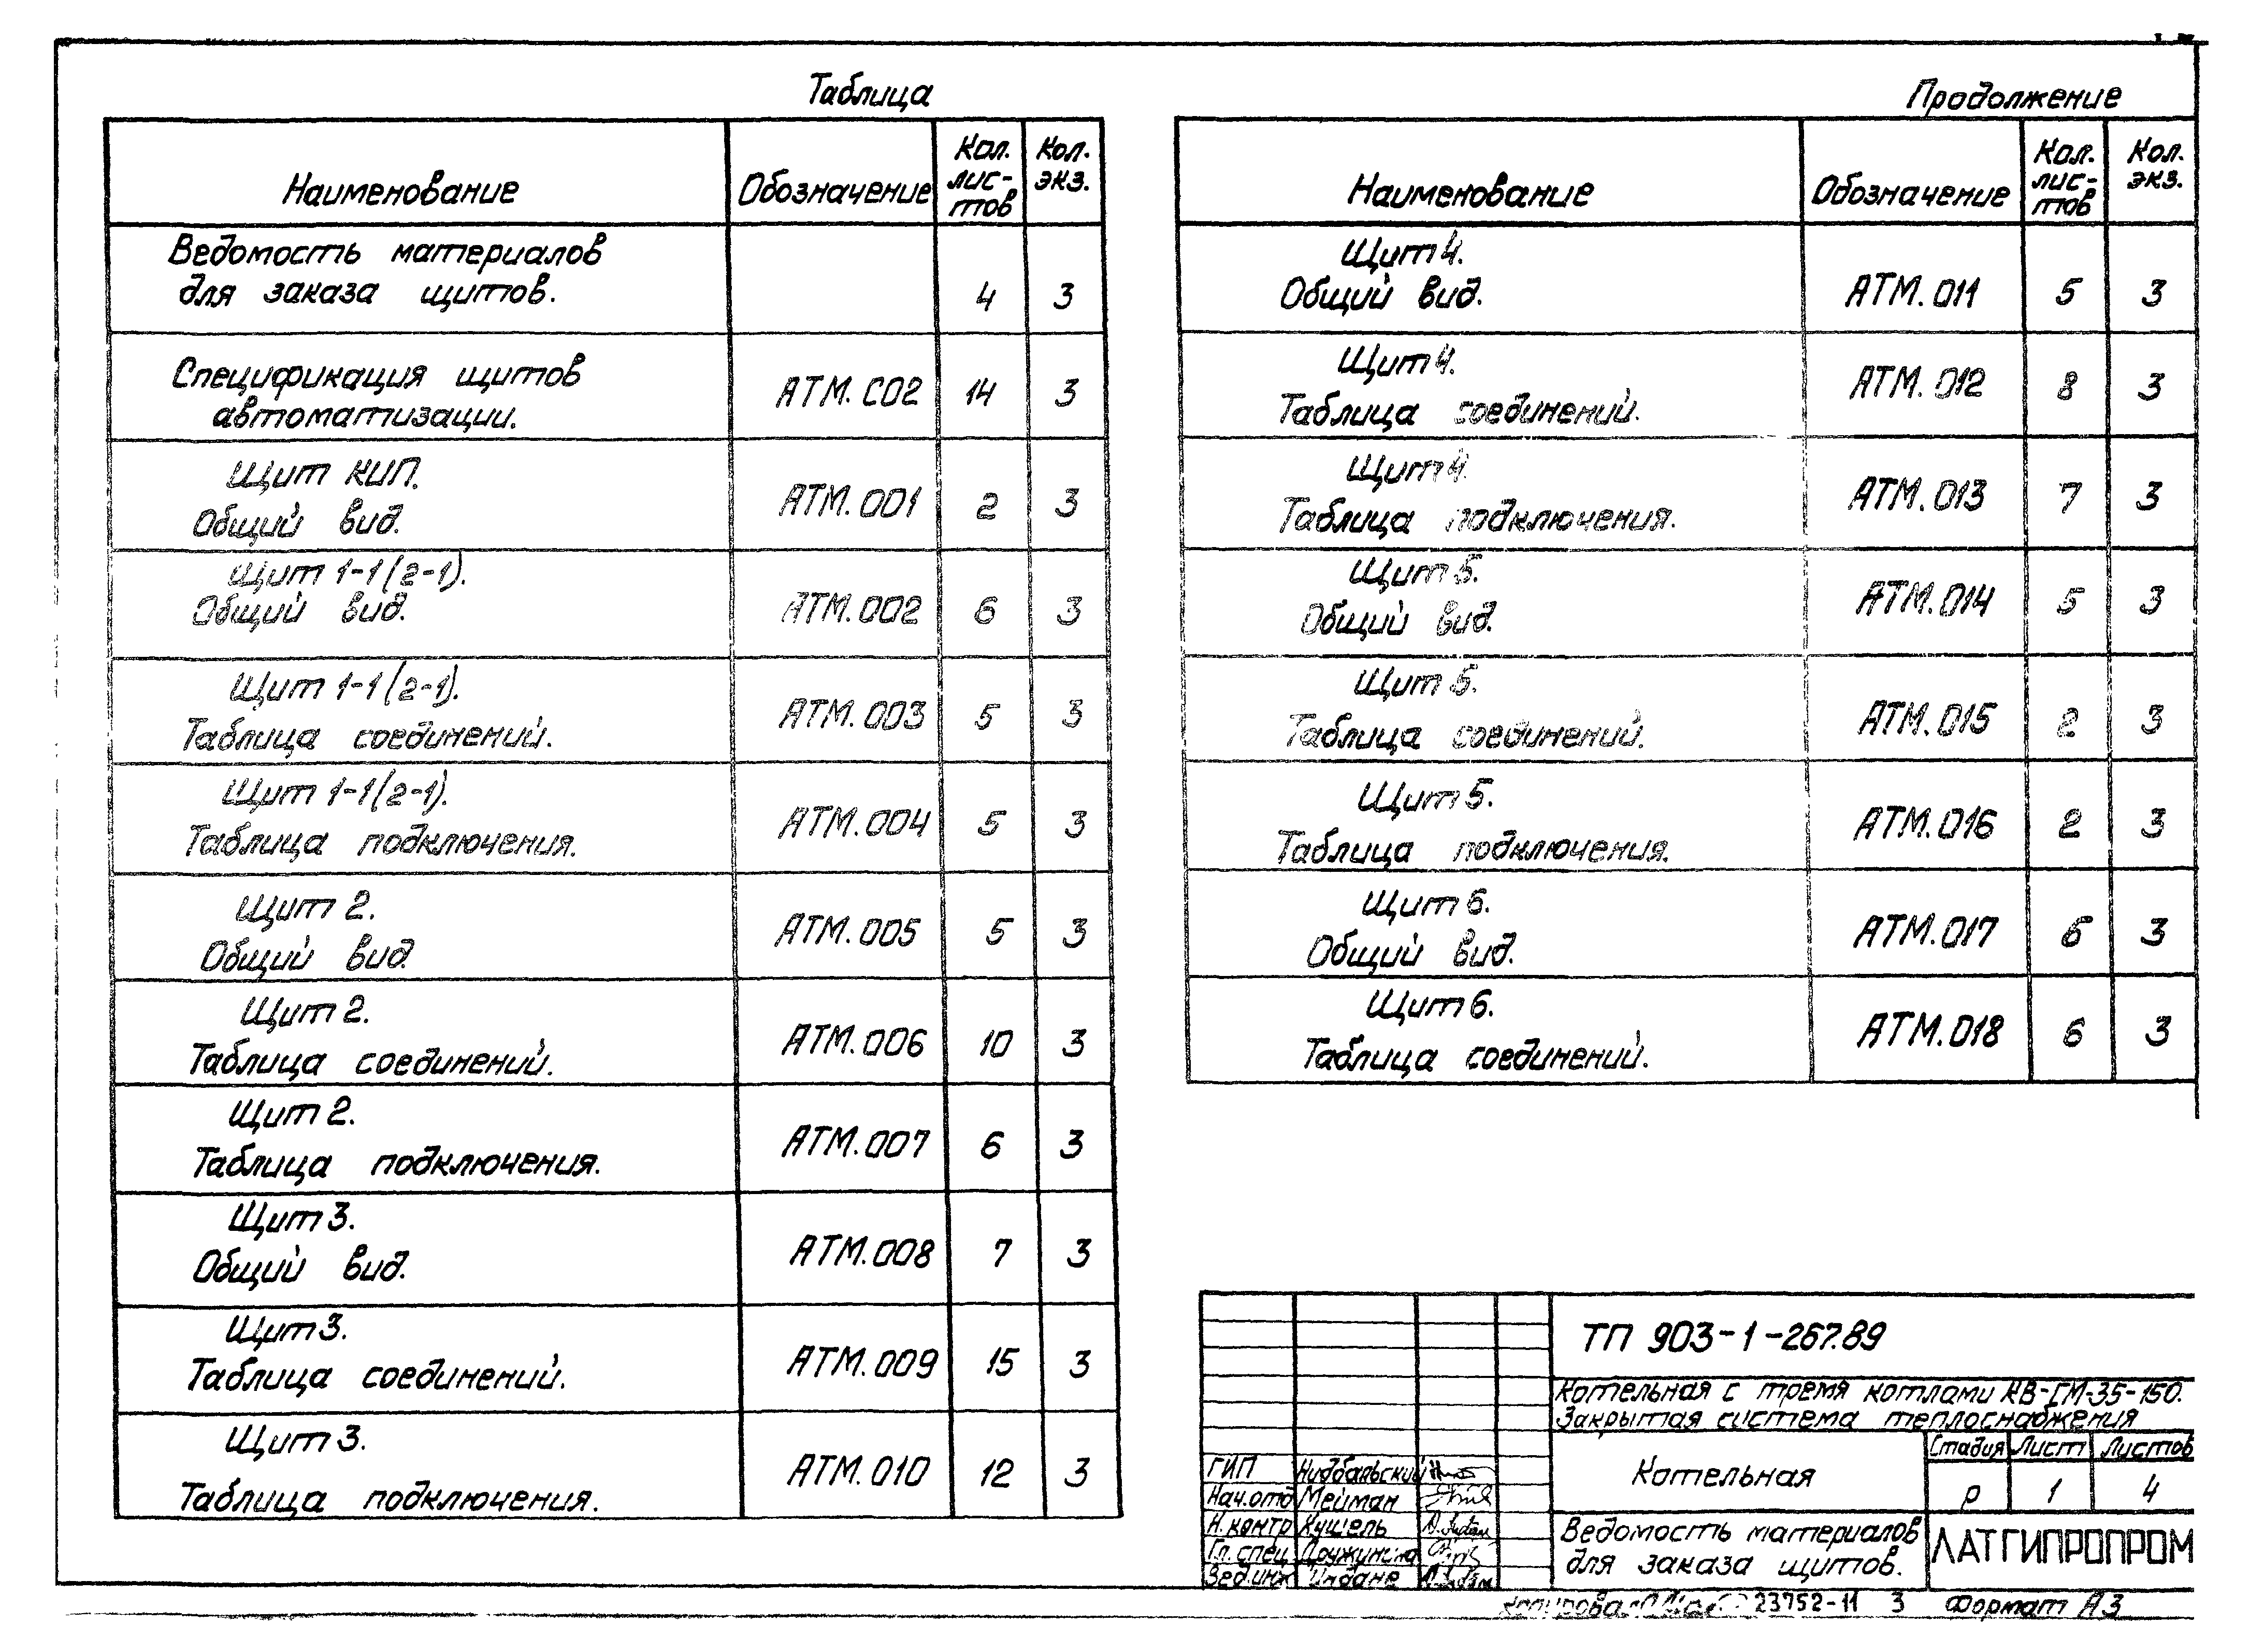 Таблица
Наименование Обозначение Кол. лис- тов Кол. экз.
Ведомость материалов
для заказа щитов. 4 3
Спецификация щитов
автоматизации. АТМ. С02 14 3
Щит КИП.
Общий вид. АТМ. 001 2 3
Щит 1-1(2-1).
Общий вид. АТМ. 002 6 3
Щит 1-1(2-1).
Таблица соединений. АТМ. 003 5 3
Щит 1-1(2-1).
Таблица подключения. АТМ. 004 5 3
Щит 2.
Общий вид АТМ. 005 5 3
Щит 2.
Таблица соединений. АТМ. 006 10 3
Щит 2.
Таблица подключения. АТМ. 007 6 3
Щит 3.
Общий вид. АТМ. 008 7 3
Щит 3.
Таблица соединений. АТМ. 009 15 3
Щит 3.
Таблица подключения. АТМ. 010 12 3
Продолжение
Наименование Обозначение Кол. лис- тов Кол. экз.
Щит 4.
Общий вид. АТМ. 011 5 3
Щит 4.
Таблица соединений. АТМ. 012 8 3
Щит 4.
Таблица подключения. АТМ. 013 7 3
Щит 5.
Общий вид. АТМ. 014 5 3
Щит 5.
Таблица соединений. АТМ. 015 2 3
Щит 5.
Таблица подключения. АТМ. 016 2 3
Щит 6.
Общий вид. АТМ. 017 6 3
Щит 6.
Таблица соединений. АТМ. 018 6 3
ТП 903-1-267.89
Котельная с тремя котлами КВ-ГМ-35-150.
Закрытая система теплоснабжения
Котельная
Стадия Лист Листов
р 1 4
ГИП Нидбальский
Нач.отд Мейман
Н. контр Кушель
Гл. спец Дружинина
Вед.инж Индане
Ведомость материалов
для заказа щитов.
ЛАТГИПРОПРОМ
23752-11 3 Формат А3